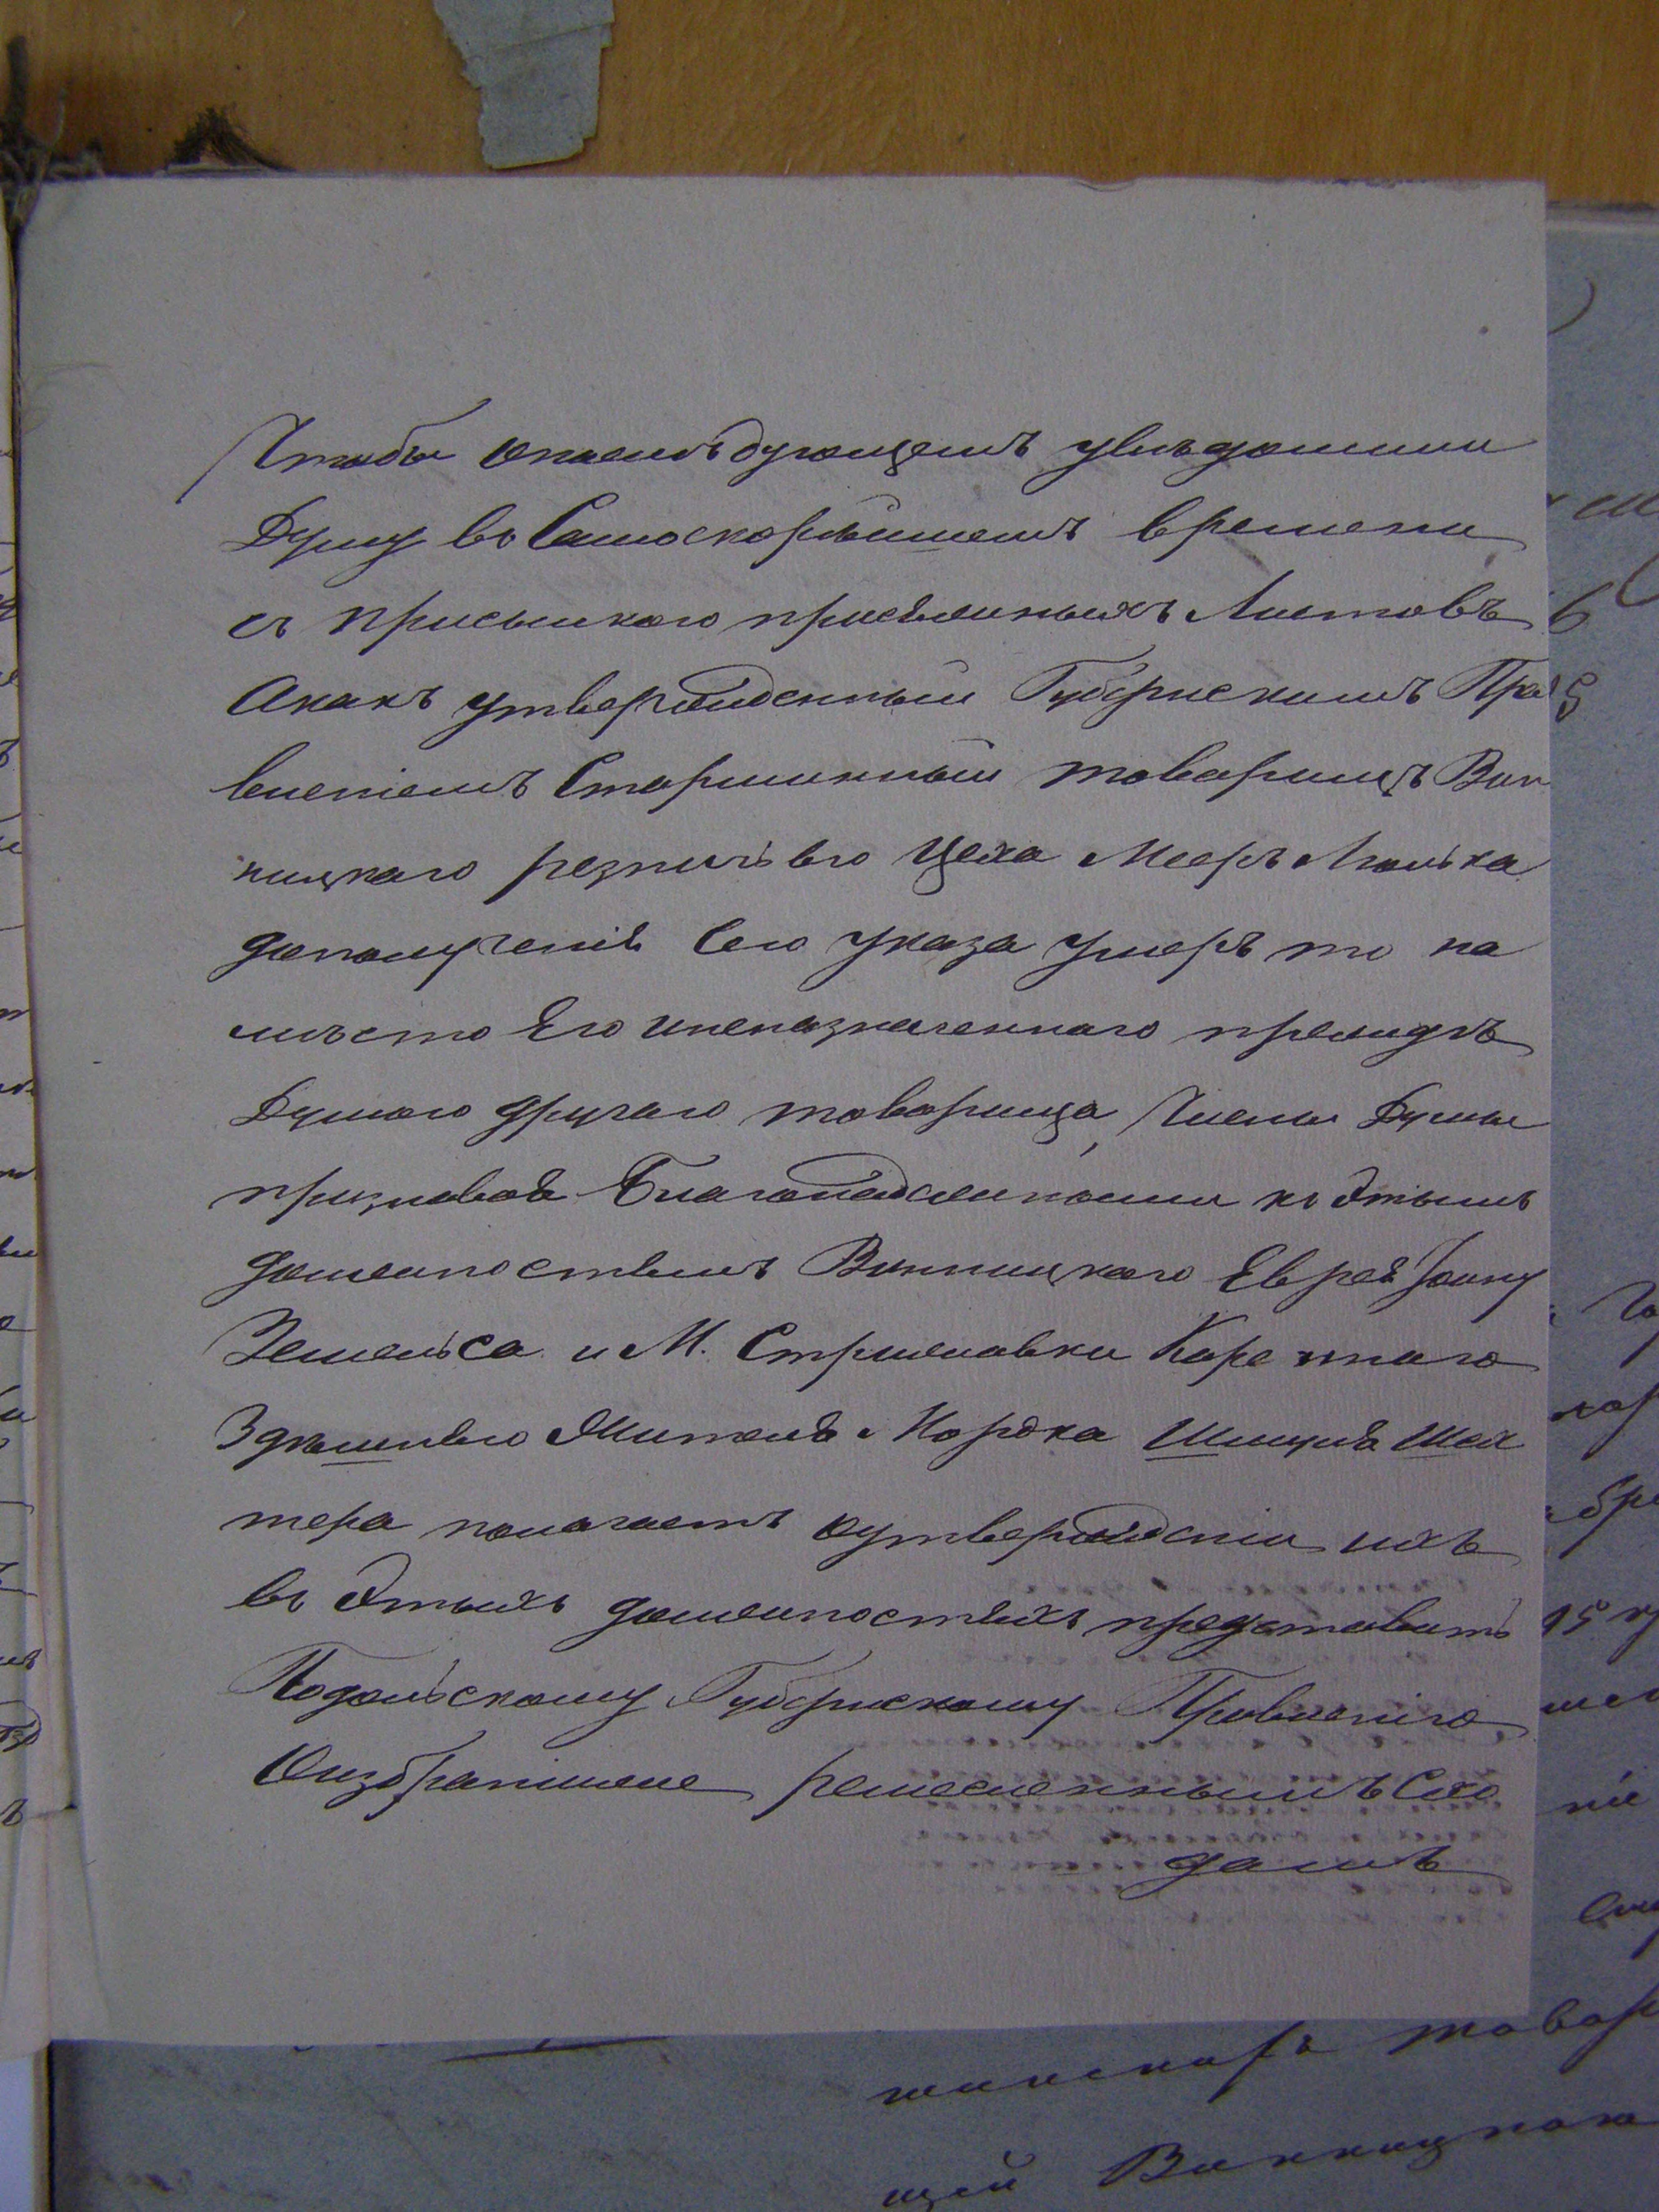 Чтобы опослѣдующемъ увѣдомили
Думу въ Самоскорѣйшемъ времени
съ присылкою присяжныхъ Листовъ
Акакъ утвержденный Губернскимъ Пра
вленіемъ Старшинный товарищъ Вин
ницкаго резничьяго Цеха Мееръ Молька
дополученія Сего указа Умеръ то на
мѣсто Его иненазначеннаго преждѣ
Думою другаго товарища, Члены Думы
признавая Благонадежными къ Этимъ
должностямъ Винницкаго Еврея Іону
Земельса и М. Стрижавки Коре ннаго
Здѣшняго Жителя Мордка Шмуля Шех
тера полагаетъ оутвержденіи ихъ
въ Этыхъ должностяхъ представить
Подольскому Губернскому Правленію
Оизбраніиже ремесленнымъ Схо
домъ
товар
щей Винницкаго